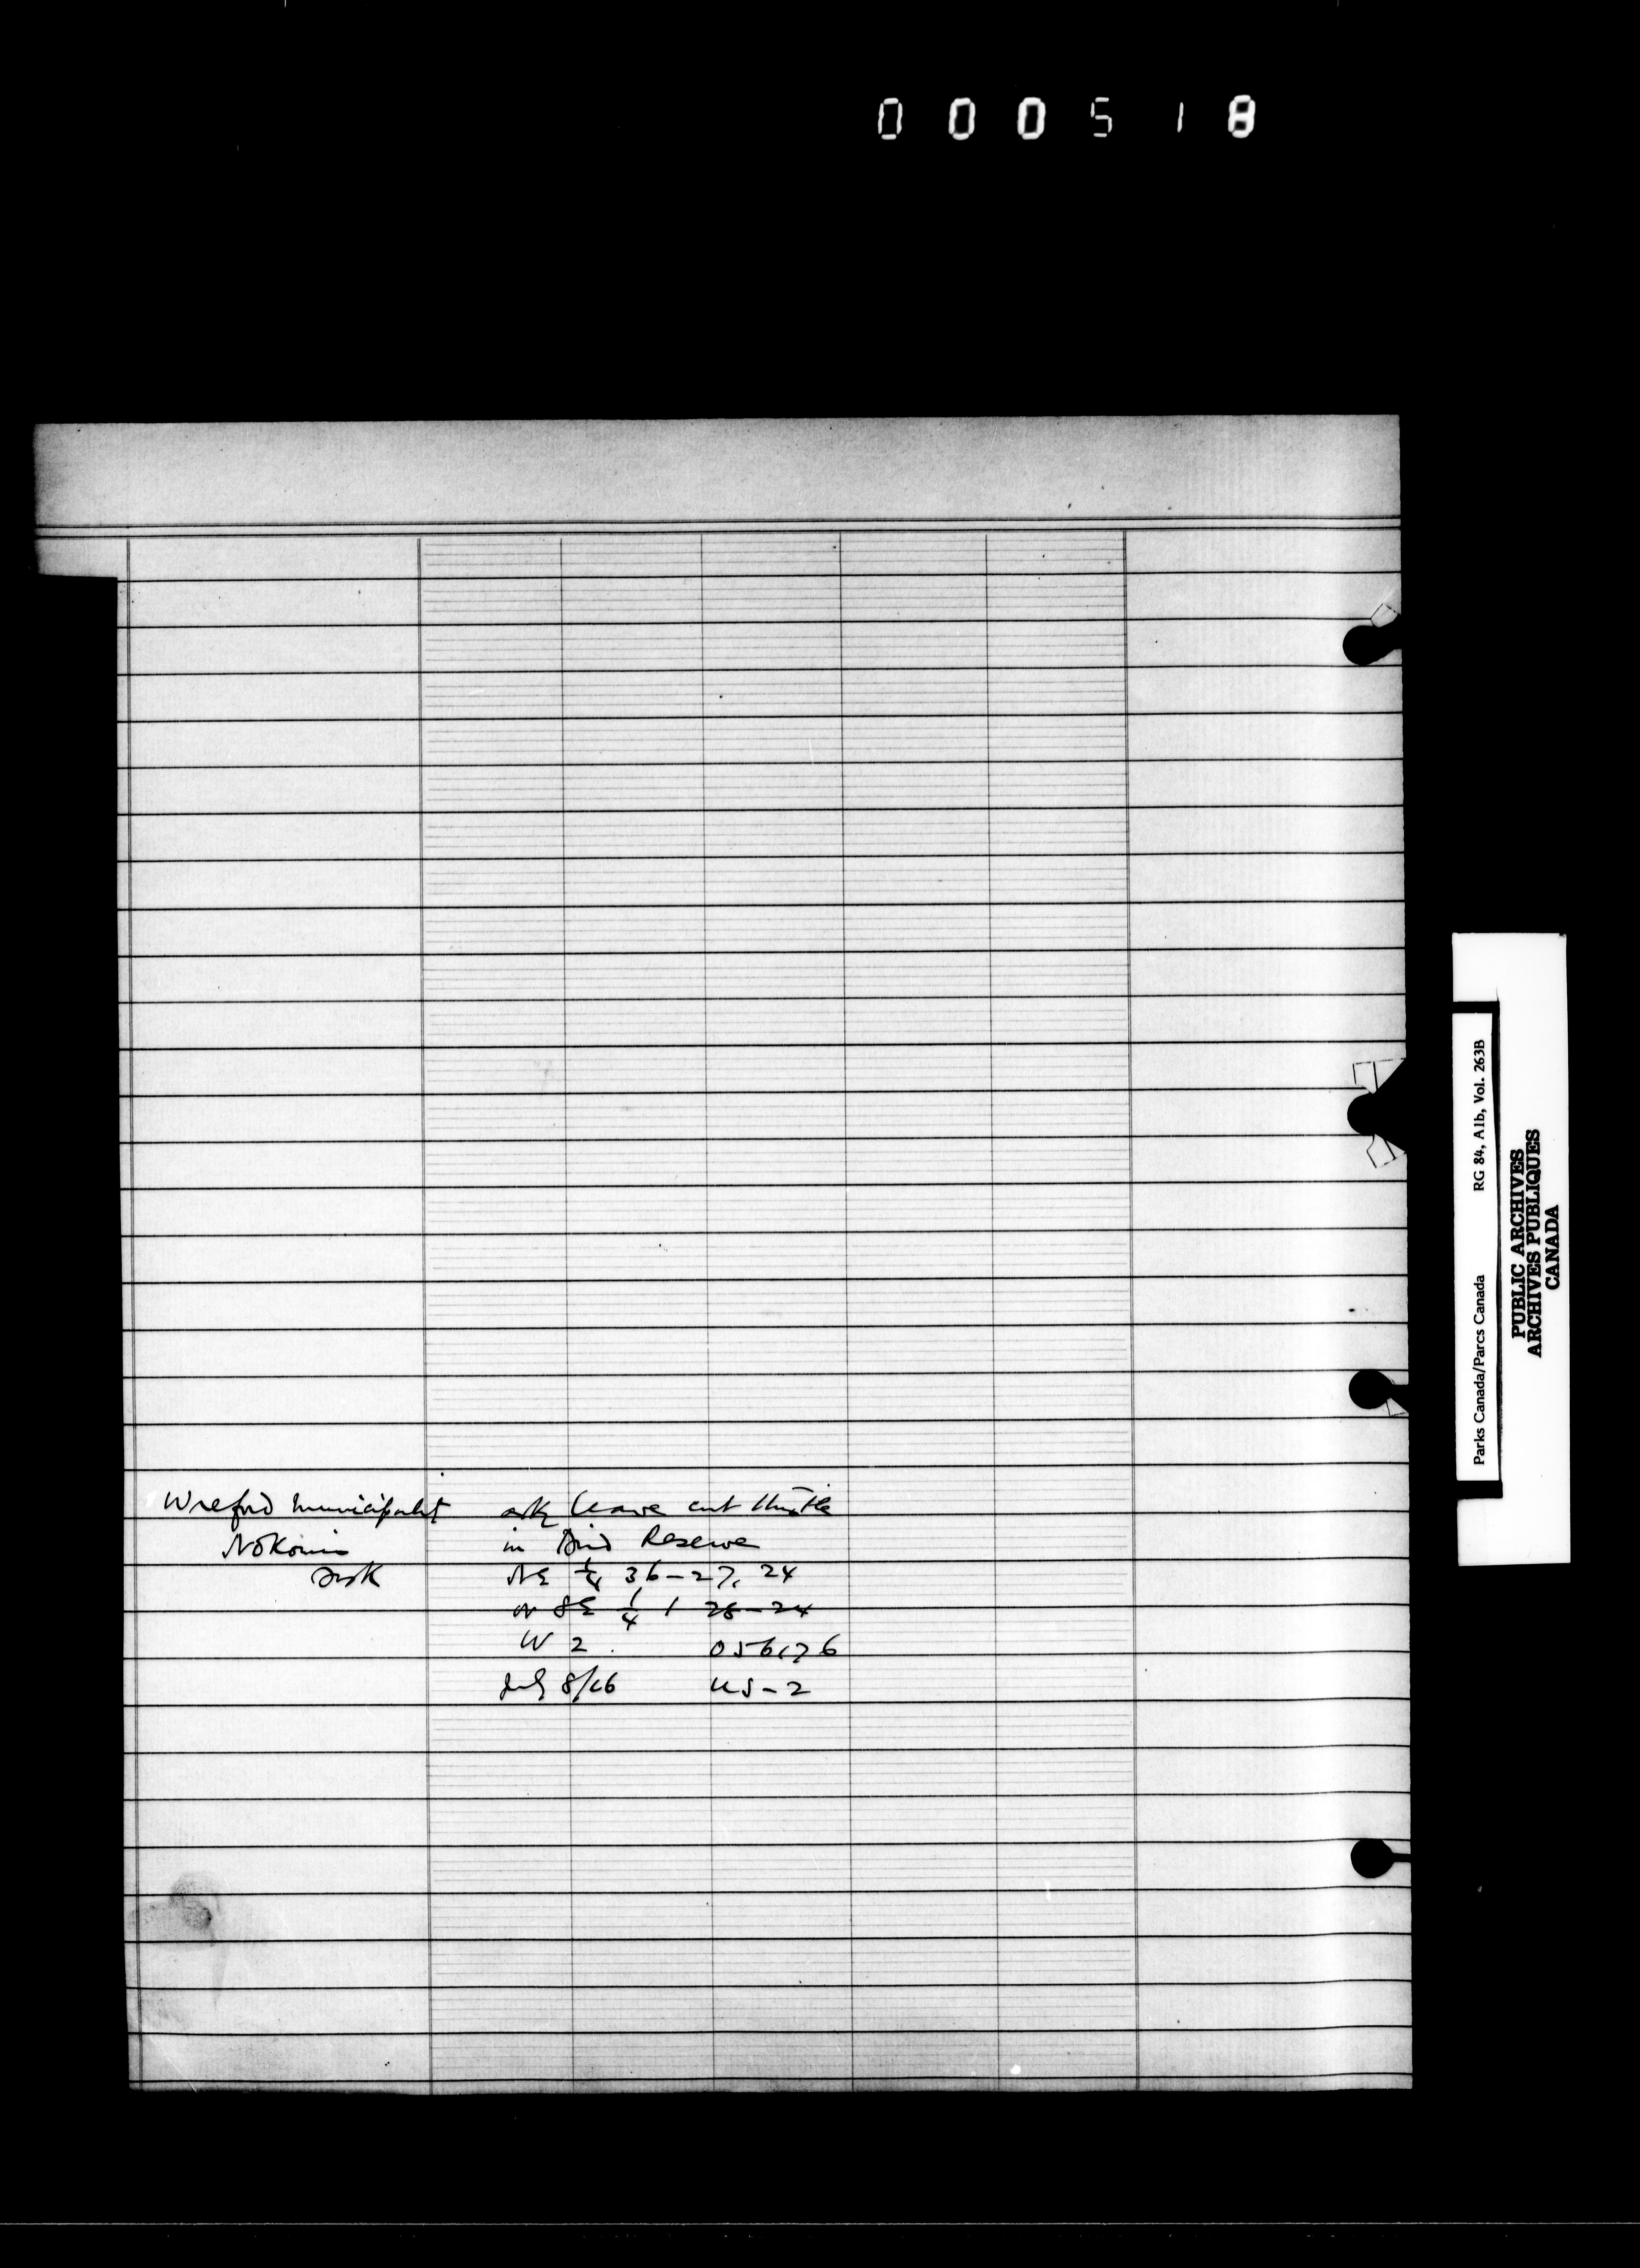 000518
Wreford Municipality ask leave cut thistle
Nokomis in Bird Reserve
Sask NE 1/4 36-27, 24
or SE 1/4 1 28-24
W 2. 056176
July 8/26 US-2
Parks Canada/Parcs Canada RG 84, A1b, Vol. 263B
PUBLIC ARCHIVES
ARCHIVES PUBLIQUES
CANADA